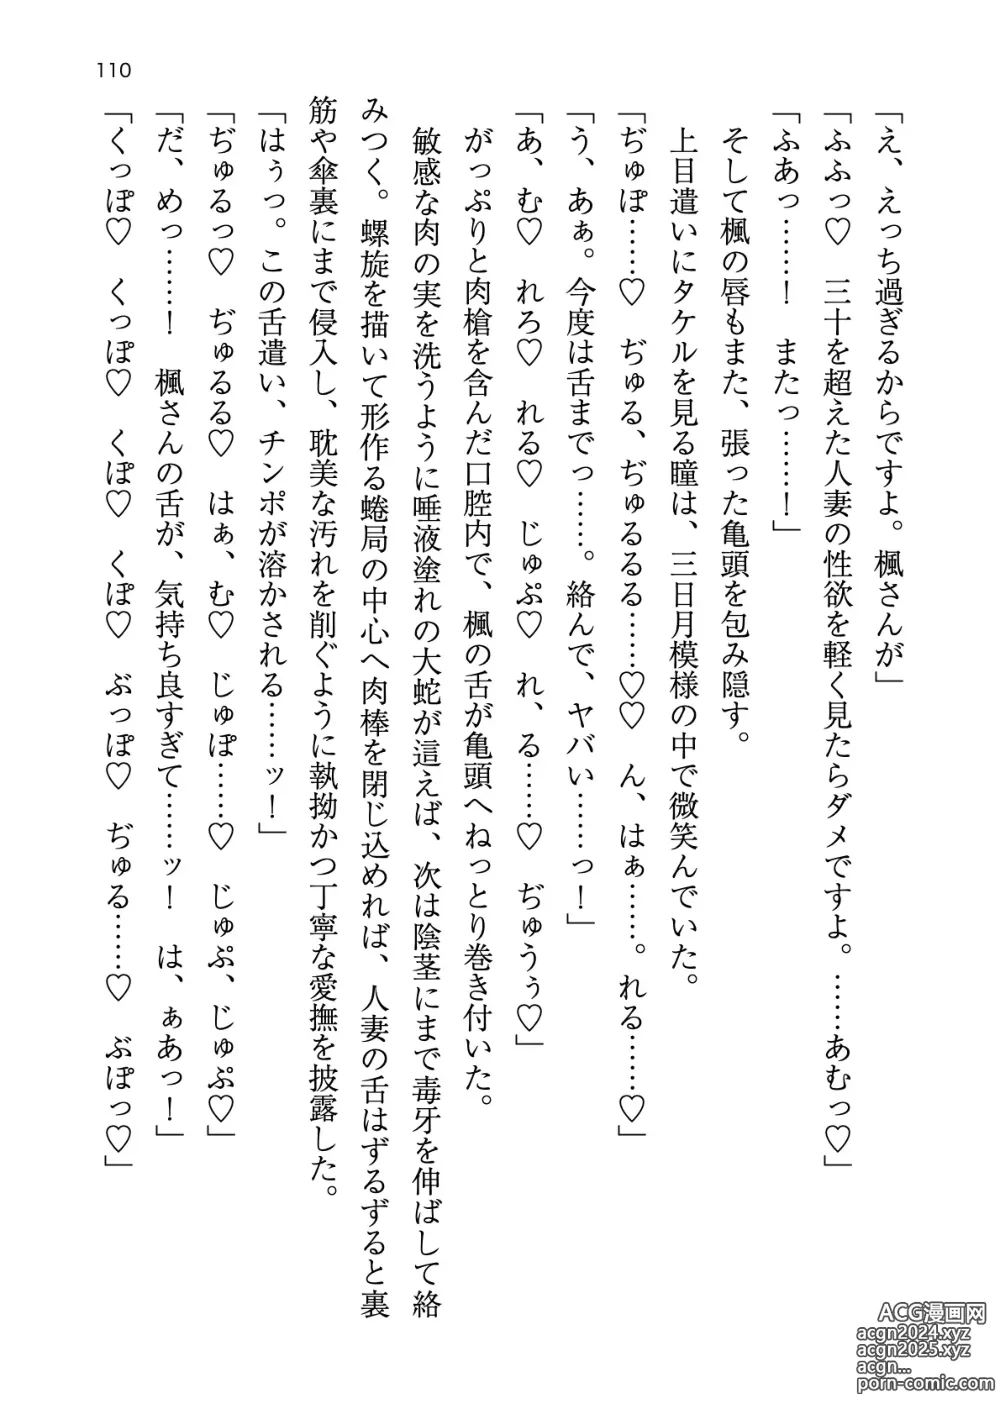 110
「え、えっち過ぎるからですよ。楓さんが」
「ふふっ♡　三十を超えた人妻の性欲を軽く見たらダメですよ。……あむっ♡」
「ふあっ……！　またっ……！」
　そして楓の唇もまた、張った亀頭を包み隠す。
　上目遣いにタケルを見る瞳は、三日月模様の中で微笑んでいた。
「ぢゅぽ……♡　ぢゅる、ぢゅるるる……♡♡　ん、はぁ……。れる……♡」
「う、あぁ。今度は舌までっ……。絡んで、ヤバい……っ！」
「あ、む♡　れろ♡　れる♡　じゅぷ♡　れ、る……♡　ぢゅうぅ♡」
　がっぷりと肉槍を含んだ口腔内で、楓の舌が亀頭へねっとり巻き付いた。
　敏感な肉の実を洗うように唾液塗れの大蛇が這えば、次は陰茎にまで毒牙を伸ばして絡
みつく。螺旋を描いて形作る蜷局の中心へ肉棒を閉じ込めれば、人妻の舌はずるずると裏
筋や傘裏にまで侵入し、耽美な汚れを削ぐように執拗かつ丁寧な愛撫を披露した。
「はぅっ。この舌遣い、チンポが溶かされる……ッ！」
「ぢゅるっ♡　ぢゅるる♡　はぁ、む♡　じゅぽ……♡　じゅぷ、じゅぷ♡」
「だ、めっ……！　楓さんの舌が、気持ち良すぎて……ッ！　は、ぁあっ！」
「くっぽ♡　くっぽ♡　くぽ♡　くぽ♡　ぶっぽ♡　ぢゅる……♡　ぶぽっ♡」
ACG漫画网
acgn2024.xyz
acgn2025.xyz
acgn...
porn-comic.com